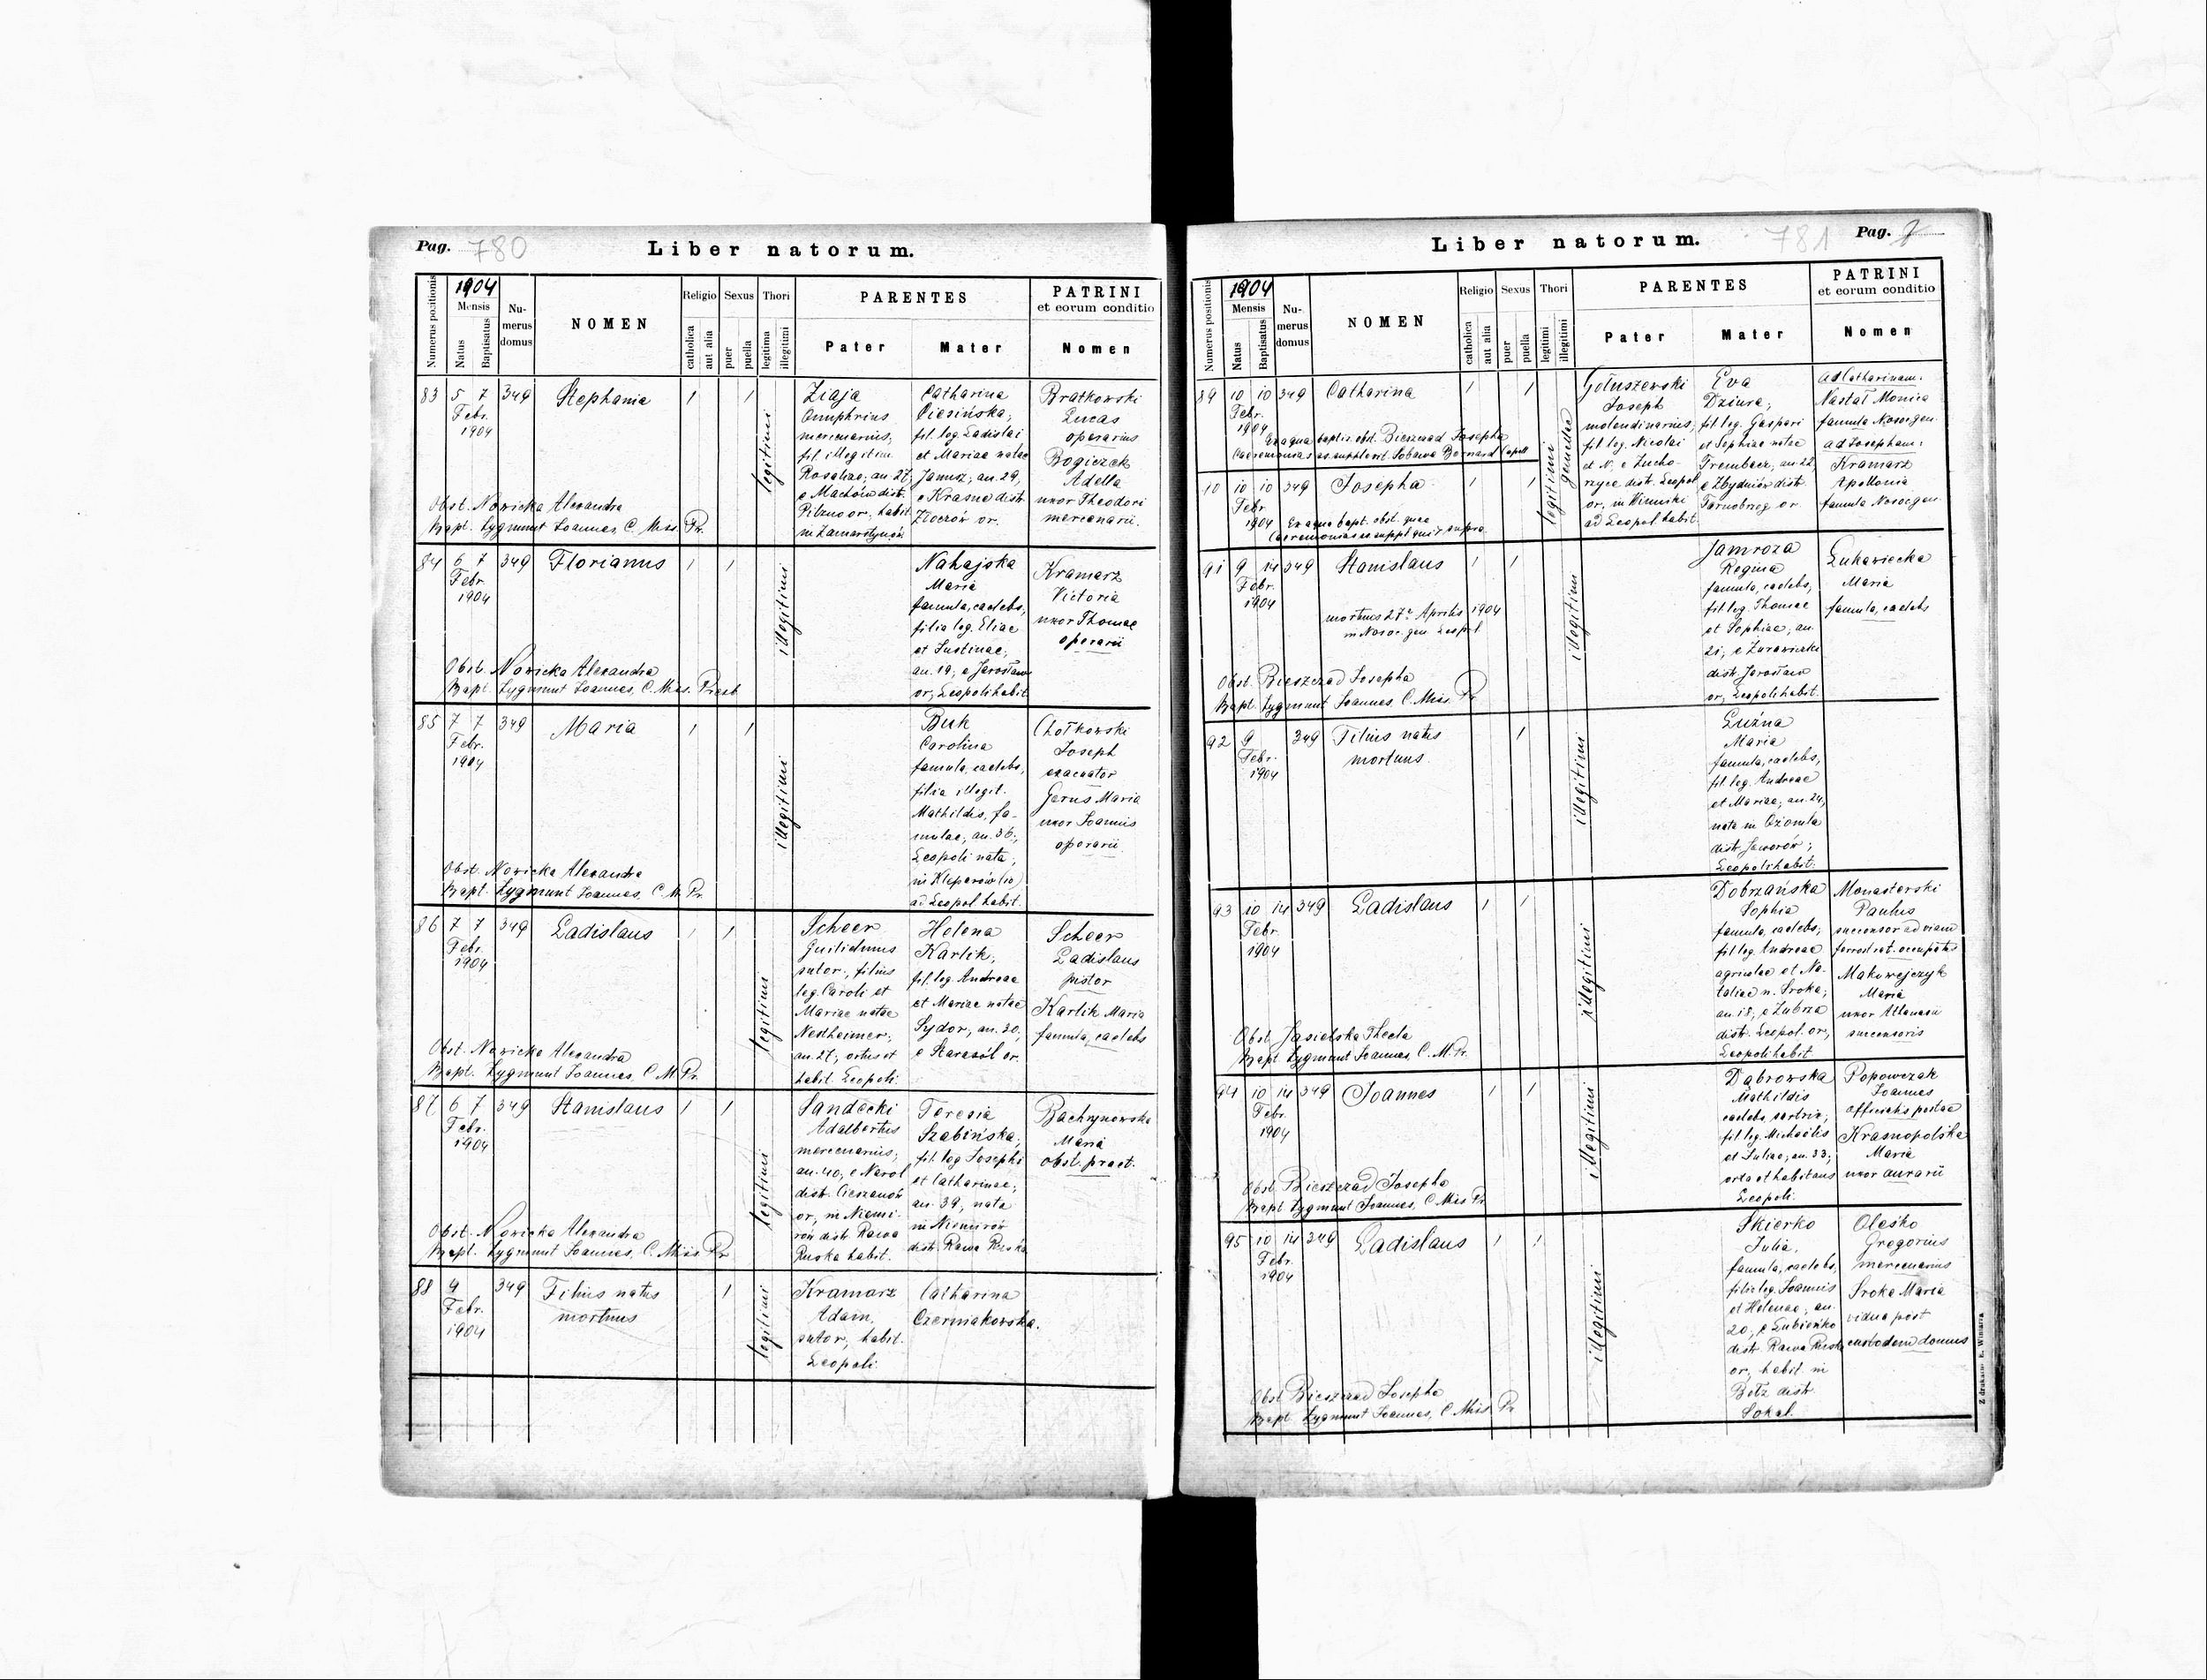 Pag. 780
Liber natorum.
Numerus positionis
1904
Mensis
Natus
Baptisatus
Nu-
merus
domus
NOMEN
Religio
catholica
aut alia
Sexus
puer
puella
Thori
legitima
illegitimi
PARENTES
Pater
Mater
PATRINI
et eorum conditio
Nomen
83
5 7
Febr.
1904
349
Stephania
1
1
legitimi
Ziaja
Onuphrius
mercenarius,
fil. illegitim.
Rosaliae, an. 27,
e Machów distr.
Pilzno or., habit.
in Zamarstynów
Catharina
Ciesińska,
fil. leg. Ladislai
et Mariae natae
Janusz, an. 29,
e Krasne distr.
Złoczów or.
Bratkowski
Lucas
operarius
Bogiczek
Adella
uxor Theodori
mercenarii.
Obst. Nowicka Alexandra
Bapt. Zygmunt Joannes, C. Miss. Pr.
84
6 7
Febr.
1904
349
Florianus
1
1
illegitimi
Nahajska
Maria
famula, caelebs,
filia leg. Eliae
et Justinae,
an. 19, e Jarosław
or., Leopoli habit.
Kramarz
Victoria
uxor Thomae
operarii
Obst. Nowicka Alexandra
Bapt. Zygmunt Joannes, C. Miss. Presb
85
7 7
Febr.
1904
349
Maria
1
1
illegitimi
Buk
Carolina
famula, caelebs,
filia illegit.
Mathildis, fa-
mulae, an. 36,
Leopoli nata,
in Kleparów (10)
ad Leopol. habit.
Chołkowski
Joseph
excavator
Gerus Maria
uxor Joannis
operarii.
Obst. Nowicka Alexandra
Bapt. Zygmunt Joannes, C. M. Pr.
86
7 7
Febr.
1904
349
Ladislaus
1
1
legitimi
Scheer
Guilielmus
sutor, filius
leg. Caroli et
Mariae natae
Nedheimer,
an. 27, ortus et
habit. Leopoli.
Helena
Karlik,
fil. leg. Andreae
et Mariae natae
Sydor, an. 20,
e Starasól or.
Scheer
Ladislaus
pistor
Karlik Maria
famula, caelebs
Obst. Nowicka Alexandra
Bapt. Zygmunt Joannes, C. M. Pr.
87
6 7
Febr.
1904
349
Stanislaus
1
1
legitimi
Sandecki
Adalbertus
mercenarius,
an. 40, e Narol
distr. Cieszanów
or., in Niemi-
rów distr. Rawa
Ruska habit.
Teresia
Szabińska,
fil. leg. Josephi
et Catharinae,
an. 39, nata
in Niemirów
distr. Rawa Ruska
Bachrynowska
Maria
obst. pract.
Obst. Nowicka Alexandra
Bapt. Zygmunt Joannes, C. Miss. Pr.
88
9
Febr.
1904
349
Filius natus
mortuus
1
legitimi
Kramarz
Adam,
sutor, habit.
Leopoli.
Catharina
Czerniakowska.
Liber natorum.
781 Pag.
Numerus positionis
1904
Mensis
Natus
Baptisatus
Nu-
merus
domus
NOMEN
Religio
catholica
aut alia
Sexus
puer
puella
Thori
legitimi
illegitimi
PARENTES
Pater
Mater
PATRINI
et eorum conditio
Nomen
89
10 10
Febr.
1904
349
Catharina
1
1
legitimi
gemellae
Gołuszewski
Joseph
molendinarius,
fil. leg. Nicolai
et N., e Zucho-
rzyce distr. Leopol.
or., in Winniki
ad Leopol. habit.
Eva
Dziura,
fil. leg. Gaspari
et Sophiae natae
Trembacz, an. 22,
e Zbydniów distr.
Tarnobrzeg or.
ad Catharinam:
Nastał Monica
famula Nosoc. gen.
ad Josepham:
Kramarz
Apollonia
famula Nosoc. gen.
Ex aqua baptis. obst. Bieszczad Josepha
Caeremonias as supplevit Sobawa Bernard Capell
10
10 10
Febr
1904
349
Josepha
1
1
Ex aqua bapt. obst. quae
Caeremonias as suppl. qui supra
91
9 14
Febr.
1904
349
Stanislaus
1
1
mortuus 27ª Aprilis 1904
in Nosoc. gen. Leopol
illegitimi
Jamroza
Regina
famula, caelebs,
fil. leg. Thomae
et Sophiae, an.
21, e Żurawiczki
distr. Jarosław
or., Leopoli habit.
Łukawiecka
Maria
famula, caelebs
Obst. Bieszczad Josepha
Bapt. Zygmunt Joannes, C. Miss. Pr
92
9
Febr.
1904
349
Filius natus
mortuus.
1
illegitimi
Luźna
Maria
famula, caelebs,
fil. leg. Andreae
et Mariae, an. 24,
nata in Ożomla
distr. Jaworów;
Leopoli habit.
93
10 14
Febr.
1904
349
Ladislaus
1
1
illegitimi
Dobrzańska
Sophia
famula, caelebs,
fil. leg. Andreae
agricolae et Na-
taliae n. Sroka,
an. 18, e Zubrza
distr. Leopol. or.,
Leopoli habit
Monasterski
Paulus
successor ad viam
ferrat. st. occupatus
Makowejczyk
Maria
uxor Athanasii
successoris
Obst. Jasielska Thecla
Bapt. Zygmunt Joannes, C. M. Pr.
94
10 14
Febr.
1904
349
Joannes
1
1
illegitimi
Dąbrowska
Mathildis
caelebs, sartrix,
fil. leg. Michaëlis
et Juliae, an. 33,
orta et habitans
Leopoli.
Popowczak
Joannes
officialis postae
Krasnopolska
Maria
uxor aurarii
Obst. Bieszczad Josepha
Bapt. Zygmunt Joannes, C. Miss Pr.
95
10 14
Febr.
1904
349
Ladislaus
1
1
illegitimi
Skierko
Julia,
famula, caelebs,
filia leg. Joannis
et Helenae, an.
20, e Lubieńko
distr. Rawa Ruska
or., habit. in
Bełz distr.
Sokal.
Oleśko
Gregorius
mercenarius
Sroka Maria
vidua post
custodem domus
Obst. Bieszczad Josepha
Bapt. Zygmunt Joannes, C. Miss. Pr
Z drukarni E. Winiarza